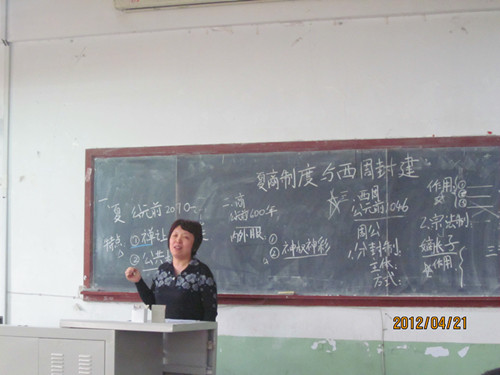 夏商制度与西周封建
一
夏 公元前2070
特点
①禅让
②公共
二、商
公元前1600年
内外服
②神权神彩
三、西周
公元前1046
周公
1、分封制
主体
方式
作用
①
②
③
2、宗法制
嫡长子
作用
三
2012/04/21